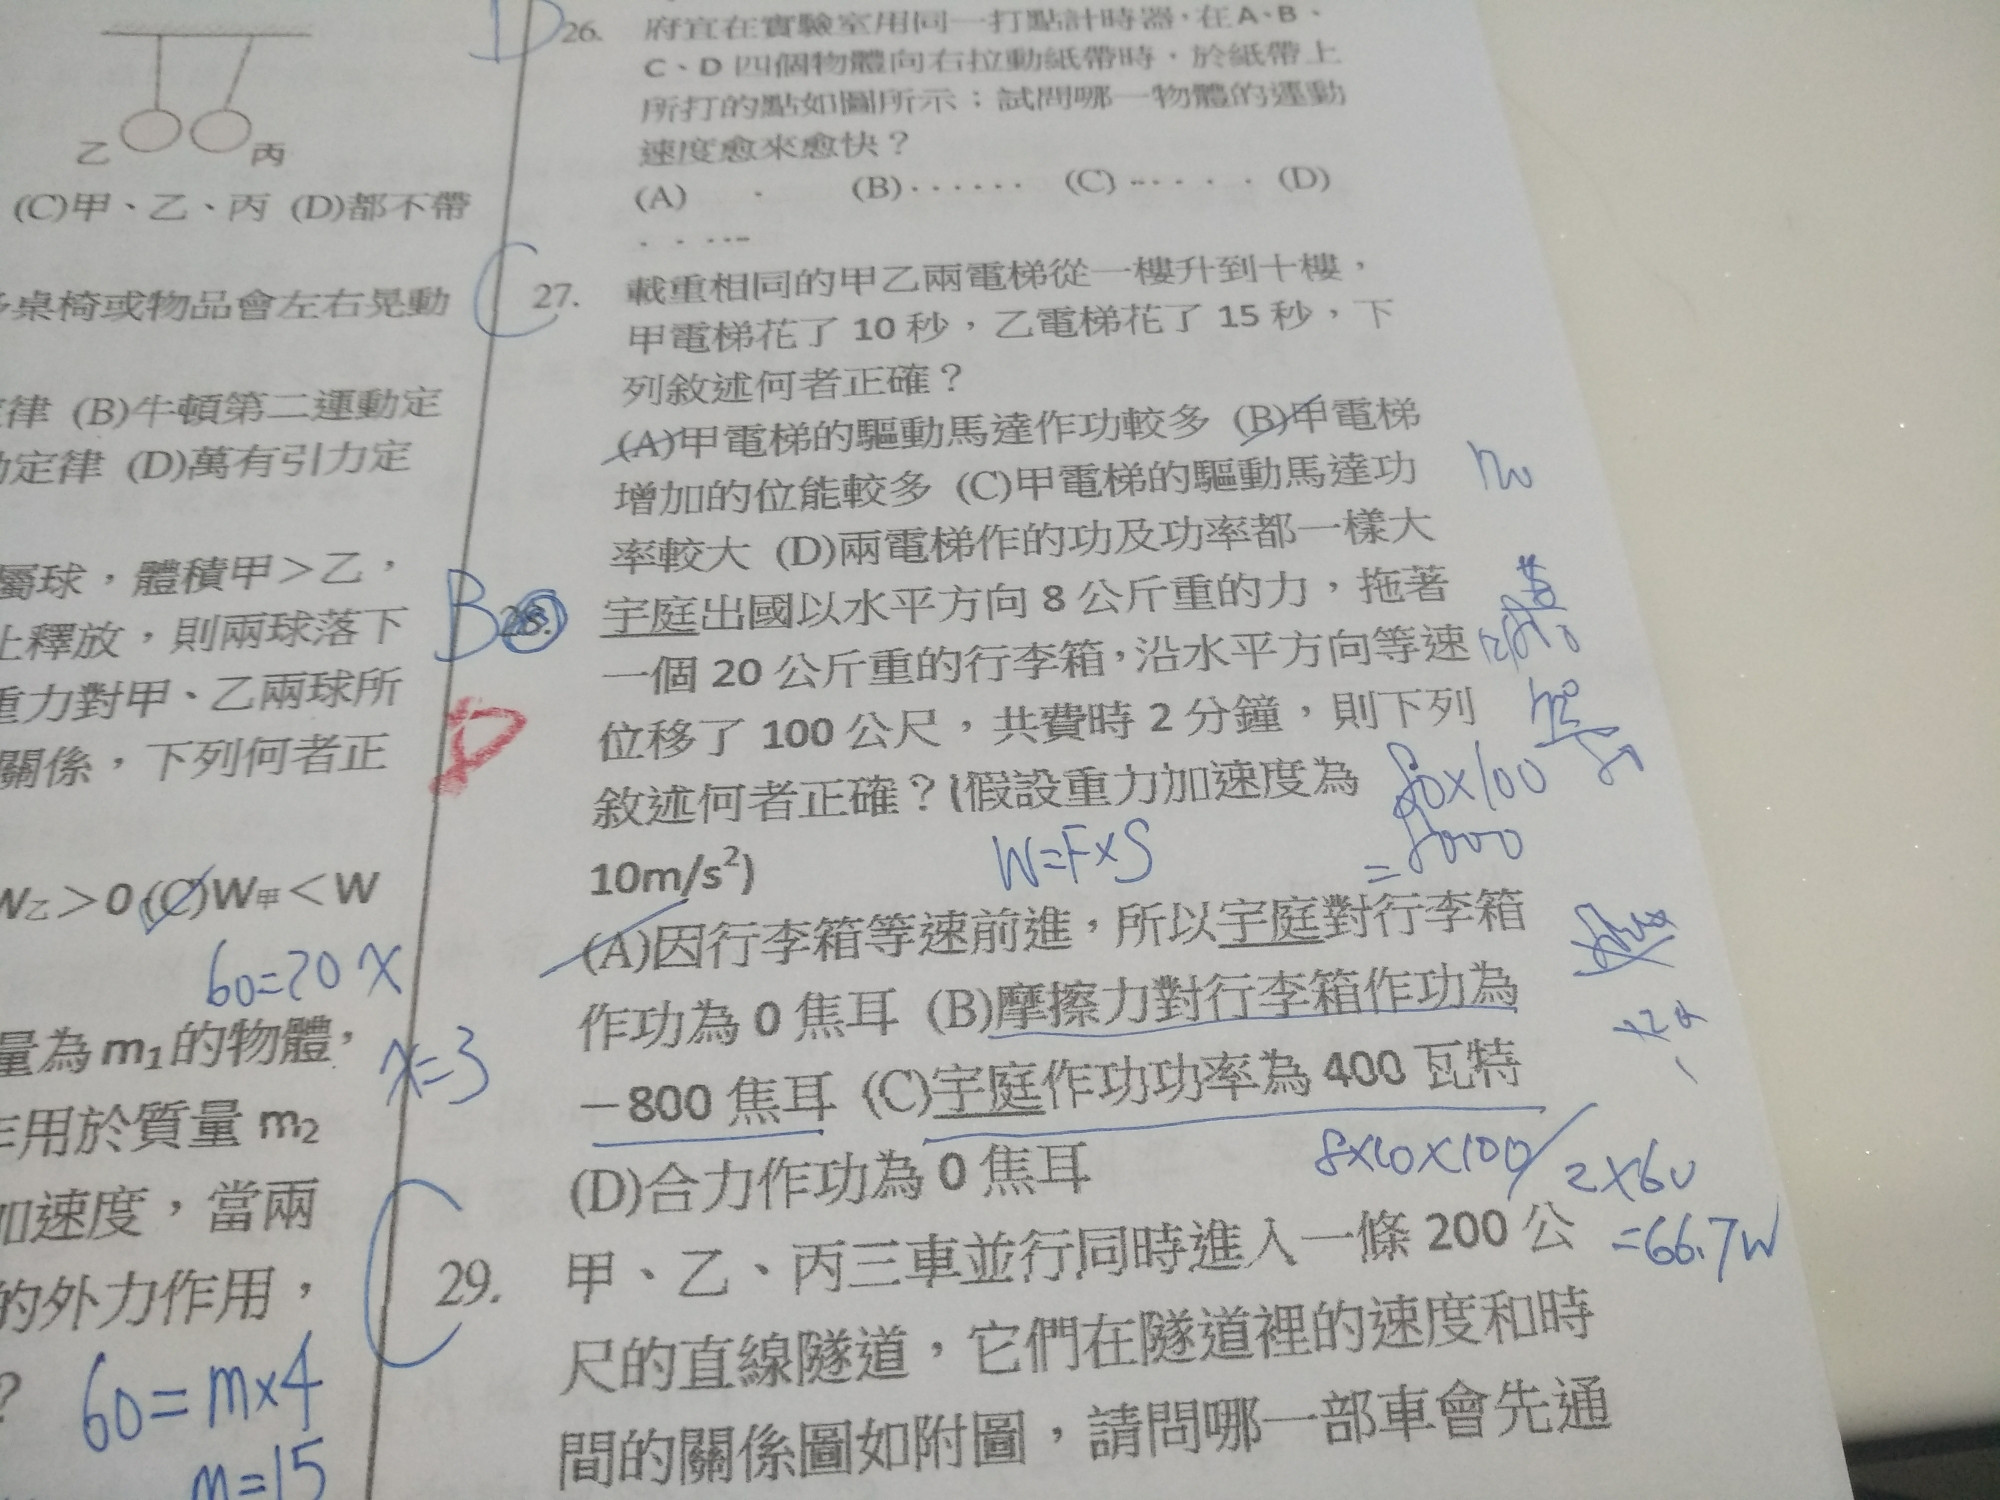 乙
丙
(C)甲、乙、丙 (D)都不帶
桌椅或物品會左右晃動
律 (B)牛頓第二運動定
定律 (D)萬有引力定
屬球，體積甲＞乙，
上釋放，則兩球落下
重力對甲、乙兩球所
關係，下列何者正
W乙＞0 (C)W甲＜W
60=20X
量為 m₁ 的物體，
x=3
作用於質量 m₂
加速度，當兩
的外力作用，
?
60=m×4
m=15
D
26. 府宜在實驗室用同一打點計時器，在 A、B、
C、D 四個物體向右拉動紙帶時，於紙帶上
所打的點如圖所示；試問哪一物體的運動
速度愈來愈快？
(A) (B) (C) (D)
C
27. 載重相同的甲乙兩電梯從一樓升到十樓，
甲電梯花了 10 秒，乙電梯花了 15 秒，下
列敘述何者正確？
(A)甲電梯的驅動馬達作功較多 (B)甲電梯
增加的位能較多 (C)甲電梯的驅動馬達功
率較大 (D)兩電梯作的功及功率都一樣大
B
28. 宇庭出國以水平方向 8 公斤重的力，拖著
一個 20 公斤重的行李箱，沿水平方向等速
位移了 100 公尺，共費時 2 分鐘，則下列
敘述何者正確？(假設重力加速度為
10m/s²)
D
W=F×S
80×100
=8000
(A)因行李箱等速前進，所以宇庭對行李箱
作功為 0 焦耳 (B)摩擦力對行李箱作功為
－800 焦耳 (C)宇庭作功功率為 400 瓦特
(D)合力作功為 0 焦耳
8×10×100/2×60
=66.7W
C
29. 甲、乙、丙三車並行同時進入一條 200 公
尺的直線隧道，它們在隧道裡的速度和時
間的關係圖如附圖，請問哪一部車會先通